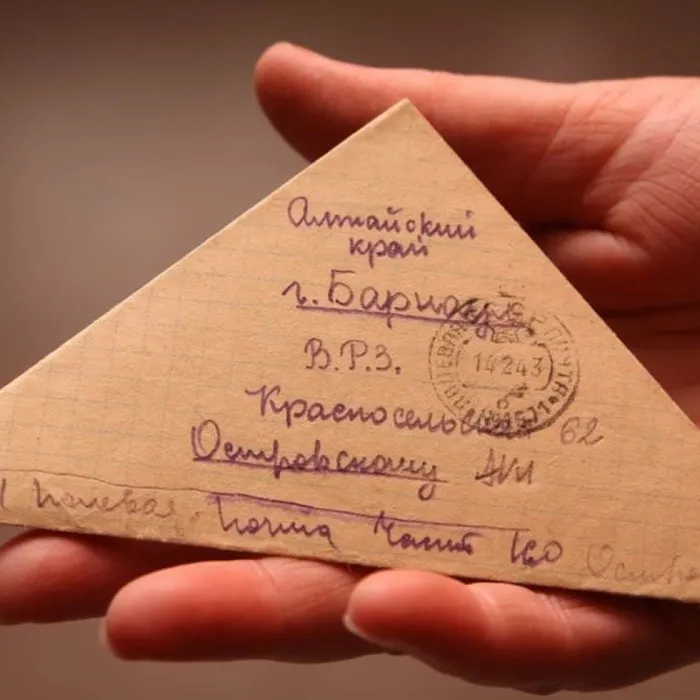 Алтайский
край
г. Барнаул
В.Р.З.
Красносельская 62
Островскому
Полевая почта часть 160
ПОЛЕВАЯ ПОЧТА
14 2 43